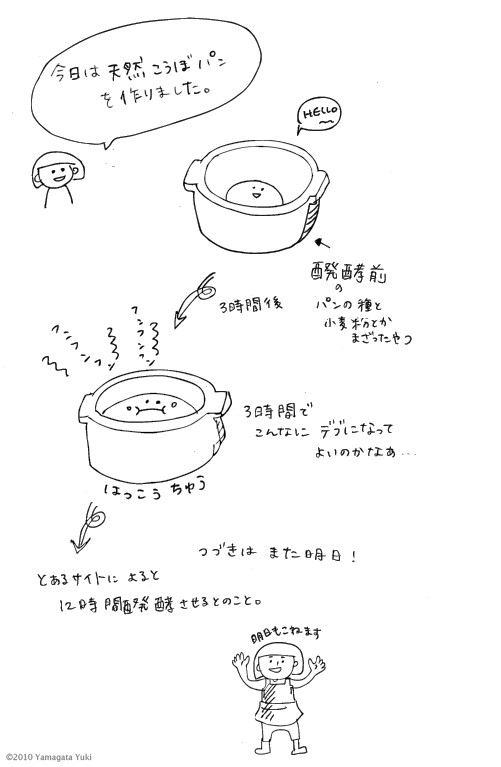 今日は天然こうぼパン
を作りました。
HELLO
醗酵前
の
パンの種と
小麦粉とか
まざったやつ
3時間後
フンフンフン
フンフンフン
3時間で
こんなに デブになって
よいのかなぁ...
はっこうちゅう
つづきは また明日!
とあるサイトに よると
12時間醗酵させるとのこと。
明日もこねます
©2010 Yamagata Yuki